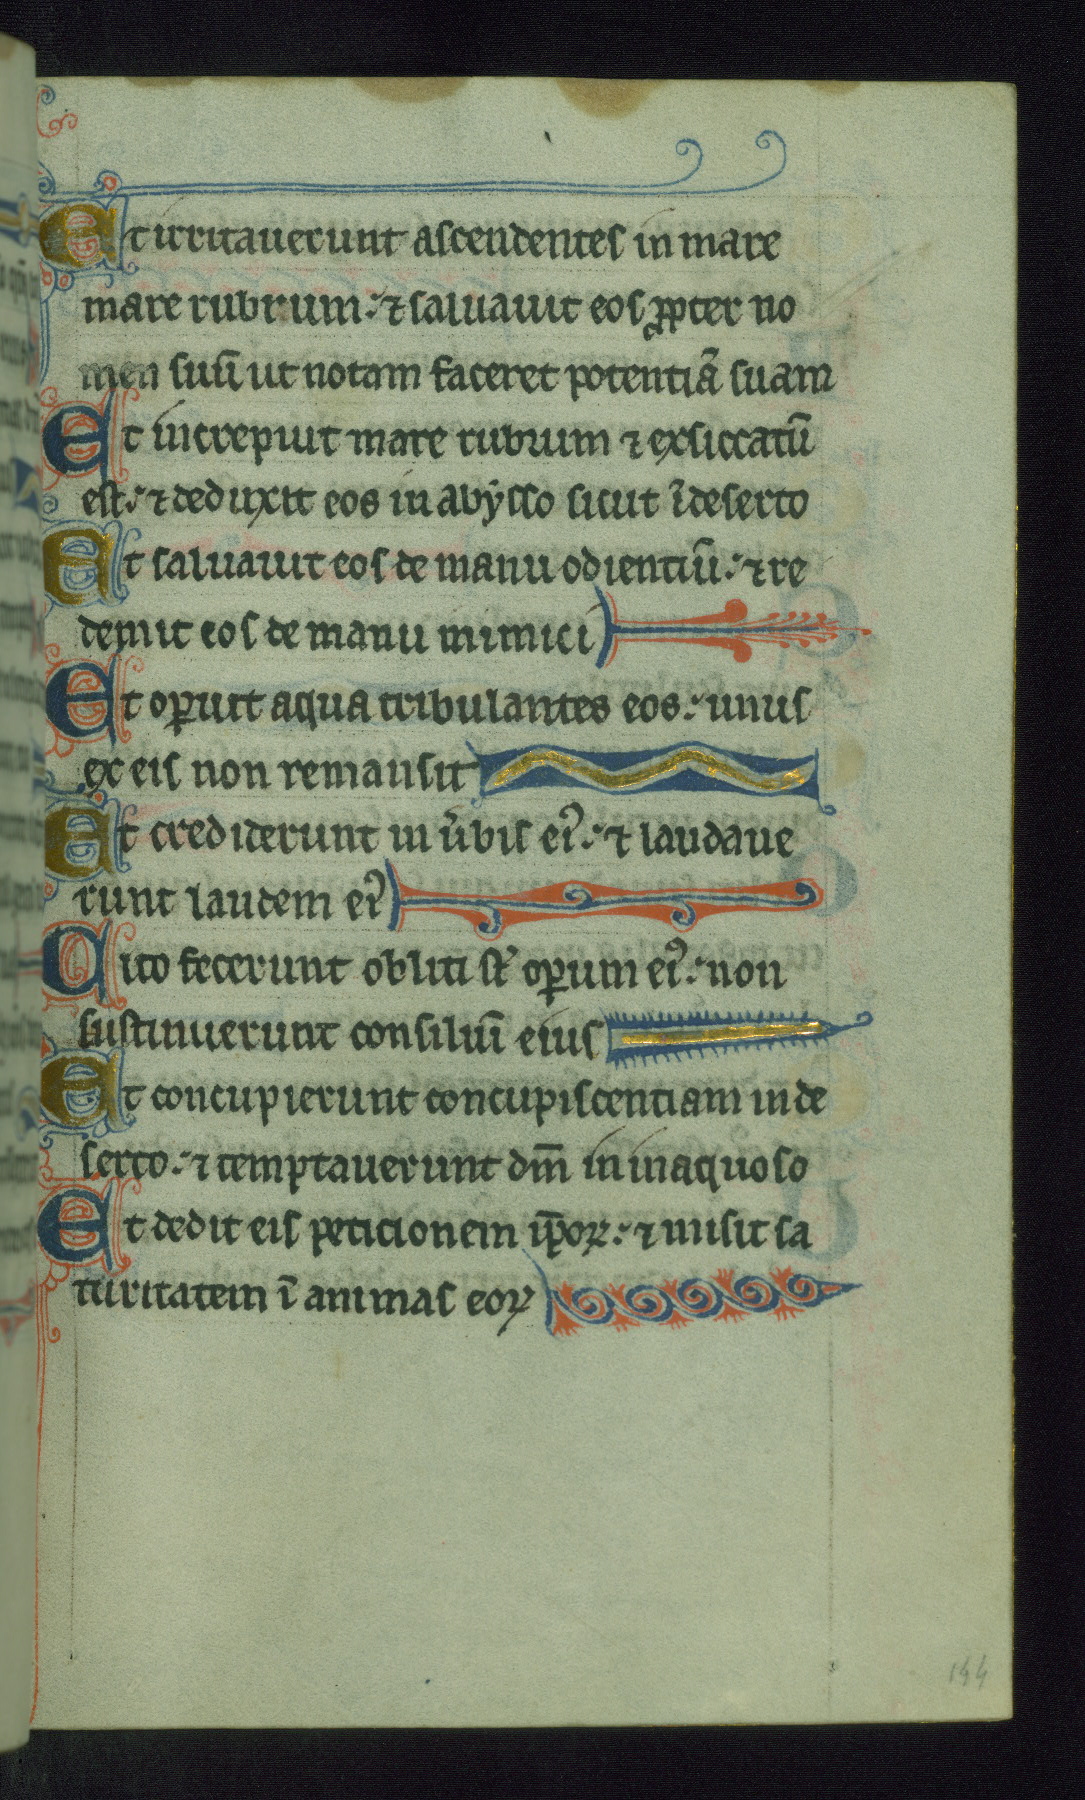 Et irritauerunt ascendentes in mare
mare rubrum: ⁊ saluauit eos ꝓpter no
men suū ut notam faceret potentiā suam
Et increpiuit mare rubrum ⁊ exsiccatū
est: ⁊ deduxit eos in abẏsso sicut ī deserto
Et saluauit eos de manu odientiū: ⁊ re
demit eos de manu inimici
Et oꝑuit aqua tribulantes eos: unus
ex eis non remansit
Et crediderunt in ūbis ei᾽: ⁊ laudaue
runt laudem ei᾽
Cito fecerunt obliti st̄ oꝑum ei᾽: non
sustinuerunt consiliū eius
Et concupierunt concupiscentiam in de
serto: ⁊ temptauerunt dm̄ in inaquoso
Et dedit eis peticionem ip̄oꝝ: ⁊ misit sa
turitatem ī animas eoꝝ
144